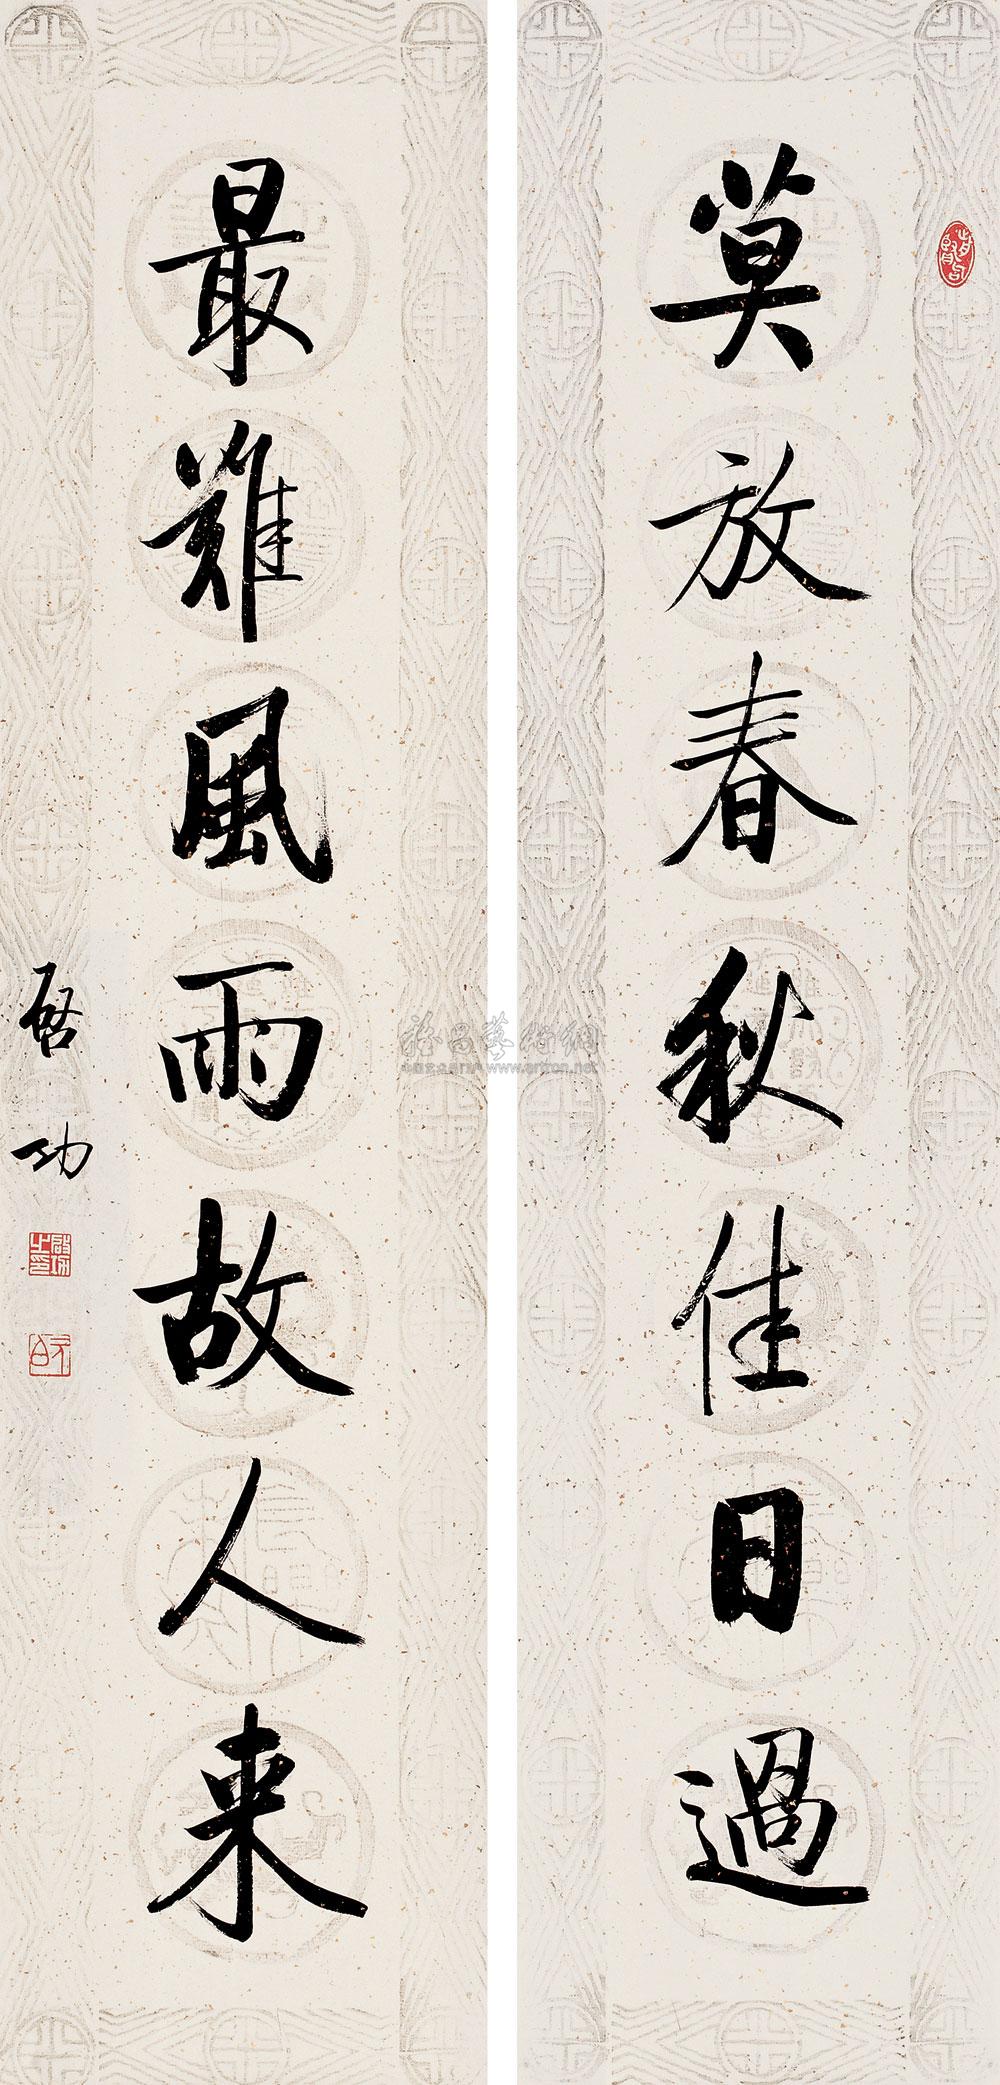 莫放春秋佳日過
最難風雨故人来
啓功
啓功之印
雅昌藝術網
www.artron.net